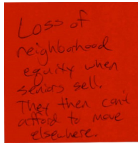 Loss of
neighborhood
equity when
seniors sell.
They then can't
afford to move
elsewhere.